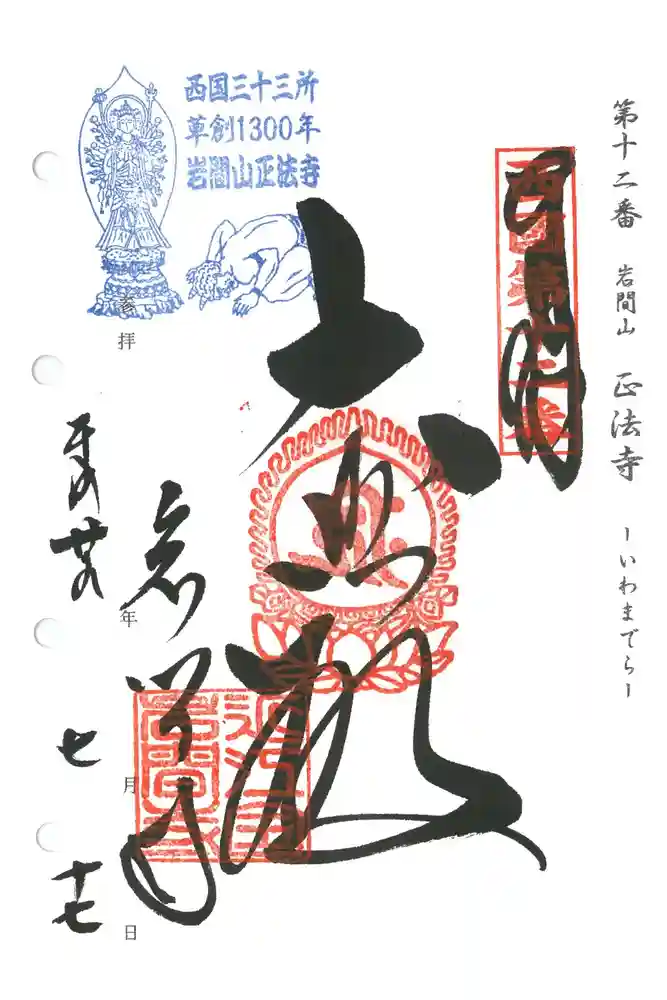 第十二番 岩間山 正法寺 -いわまでら-
西国第十二番
西国三十三所
草創1300年
岩間山正法寺
大悲殿
岩間寺
近江国
岩間寺
参拝
平成
年
七月
十七日